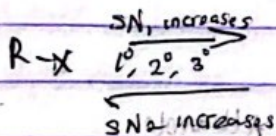 SN₁ increases
R-X 1°, 2°, 3°
SN₂ increases